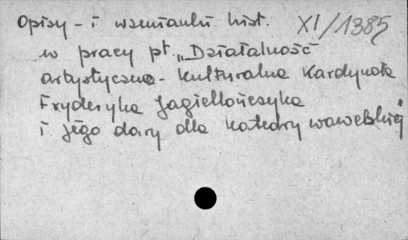 Opisy - i wzmianki hist. XI/1385
w pracy pt. „Działalność
artystyczno - kulturalna Kardynała
Fryderyka Jagiellończyka
i jego dary dla katedry wawelskiej